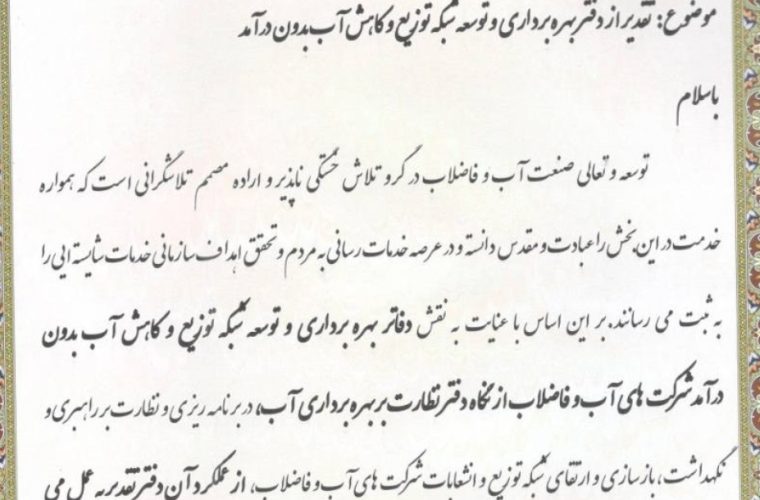 موضوع: تقدیر از دفتر بهره برداری و توسعه شبکه توزیع و کاهش آب بدون درآمد
باسلام
توسعه و تعالی صنعت آب و فاضلاب در گرو تلاش خستگی ناپذیر و اراده مصمم تلاشگرانی است که همواره
خدمت در این بخش را عبادت و مقدس دانسته و در عرصه خدمات رسانی به مردم و تحقق اهداف سازمانی خدمات شایسته ایی را
به ثبت می رسانند. بر این اساس با عنایت به نقش دفاتر بهره برداری و توسعه شبکه توزیع و کاهش آب بدون
درآمد شرکت های آب و فاضلاب از نگاه دفتر نظارت بر بهره برداری آب، در برنامه ریزی و نظارت بر راهبری و
نگهداشت، بازسازی و ارتقای شبکه توزیع و انشعابات شرکت های آب و فاضلاب، از عملکرد آن دفتر تقدیر به عمل می